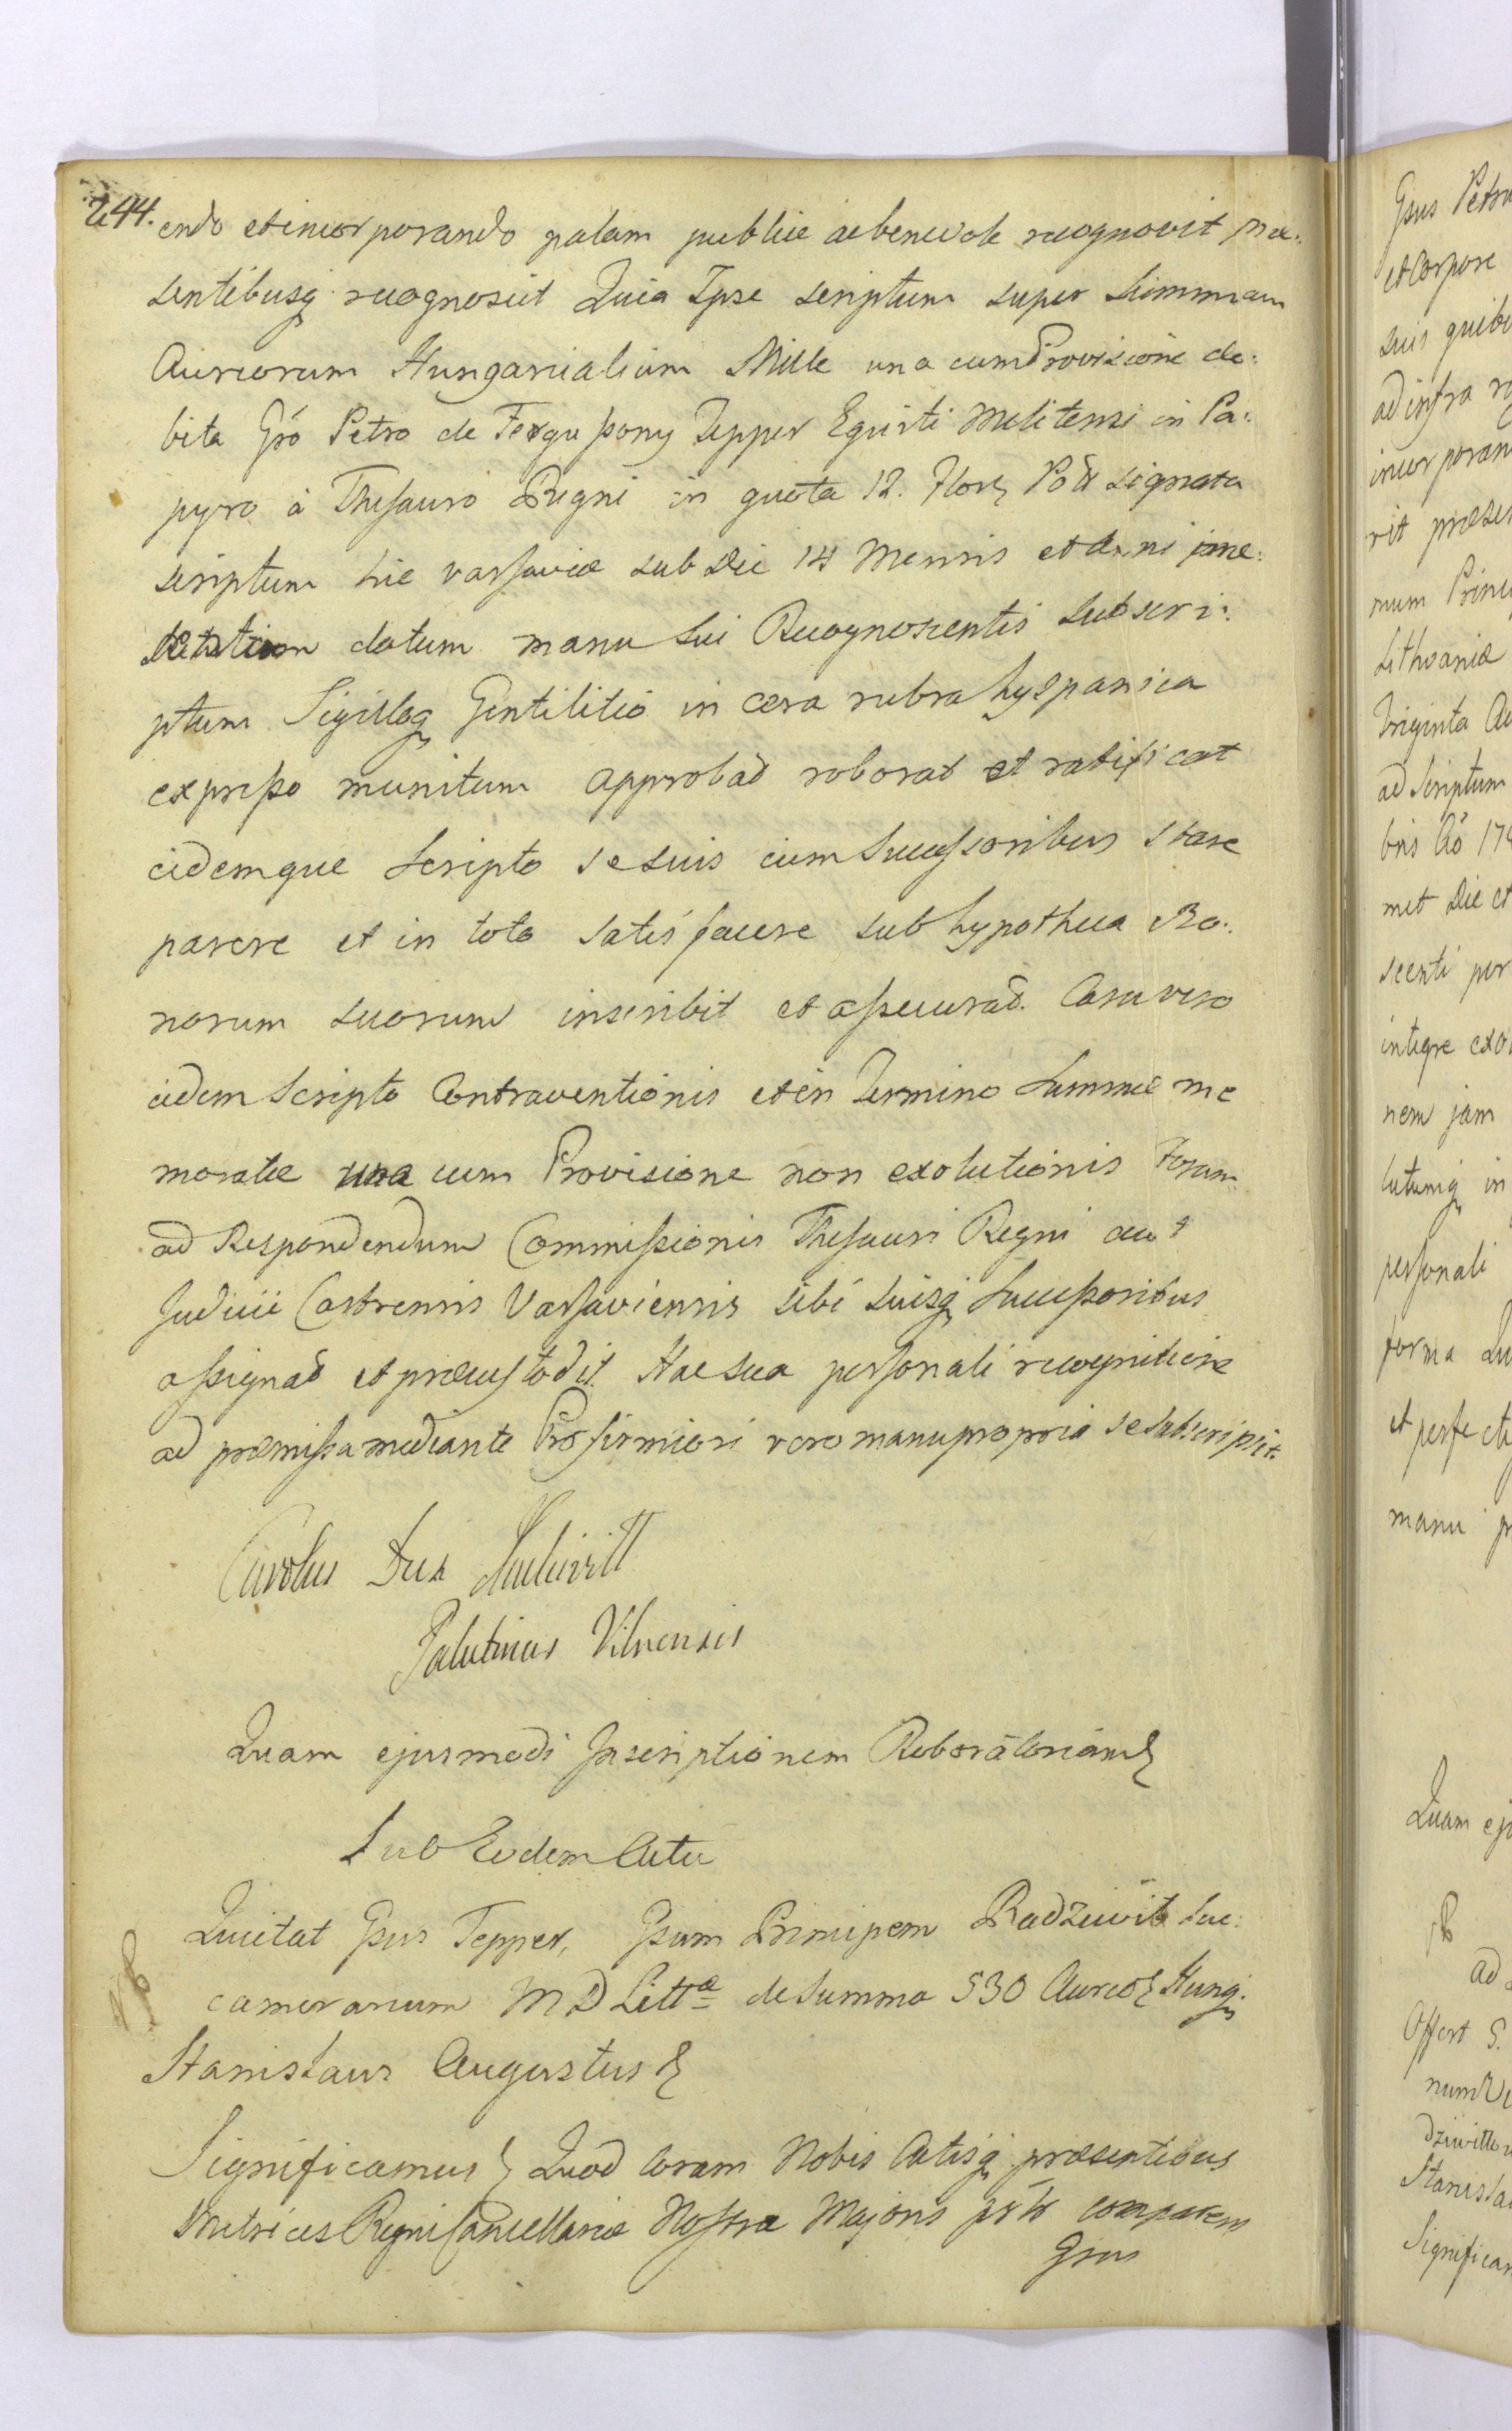 244. endo et incorporando palam publice ac benevole recognovit præ:
sentibusq recognoscit Quia Ipse scriptum super Summam
Aureorum Hungaricalium Mille una cum Provisione de:
bita Gro Petro de Fergussony Tepper Equiti Melitensi in Pa:
pyro à Thesauro Regni in quota 12. Flor Pol signata
scriptum hic varsaviæ sub Die 14 Mensis et Anni præ:
sentium datum manu sui Recognoscentis subscri:
ptum Sigilloq Gentilitio in cera rubra hyspanica
expresso munitum approbat roborat et ratificat
eidemque Scripto se suis cum Successoribus stare
parere et in toto satisfacere sub hypotheca Bo:
norum suorum inscribit et assecurat. Casu vero
eidem Scripto Contraventionis et in Termino Summæ me
moratæ una cum Provisione non exolutionis Forum
ad Respondendum Commissionis Thesauri Regni aut
Judicii Castrensis Varsaviensis sibi suisq Successoribus
assignat et præcustodit. Hac sua personali recognitione
ad præmissa mediante Pro firmiori vero manu propria se subscripsit.
Carolus Dux Radziwill
Palatinus Vilnensis
Quam ejusmodi Inscriptionem Roboratoriam
Sub Eodem Actu
Quietat Gsus Tepper, Gsum Principem Radziwił Suc:
camerarium M D Litt de Summa 530 Aureo Hung:
Stanislaus Augustus
Significamus Quod Coram Nobis Actisq præsentibus
Metrices Regni Cancellariæ Nostræ Majoris comparens
Gsus
Gsus Petru
et Corpore
suis quibu
ad infra
incorporan
rit præsen
mum Princi
Lithvaniæ
Triginta Au
ad Scriptum
bris Ao 178
met Die et
scenti per
integre exo
nem jam
lutumq in
personali
forma Su
et perfect
manu p
Quam ej
ad
Offert S.
num
dziwillo
Stanisla
Significam